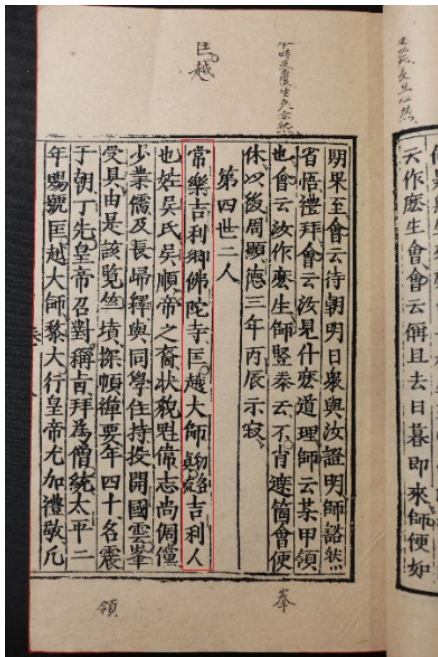 云作麽生會會云俑且去日暮即來師便如
明果至會云待朝明日衆與汝證明師豁然
省悟禮拜會云汝見什麽道理師云某甲領
也會云汝作麽生師竪拳云不肖遮箇會便
休以後周顯德三年丙辰示寂
第四世二人
常樂吉利鄉佛陀寺匡越大師吉利人
也姓吳氏吳順帝之裔狀貌魁偉志尚倜儻
少業儒及長歸釋與同學住持投開國雲峯
受具由是該覽竺墳探頤禪要年四十名震
于朝丁先皇帝召對稱旨拜爲僧統太平二
年賜號匡越大師黎大行皇帝尤加禮敬凡
匡越
峯
領